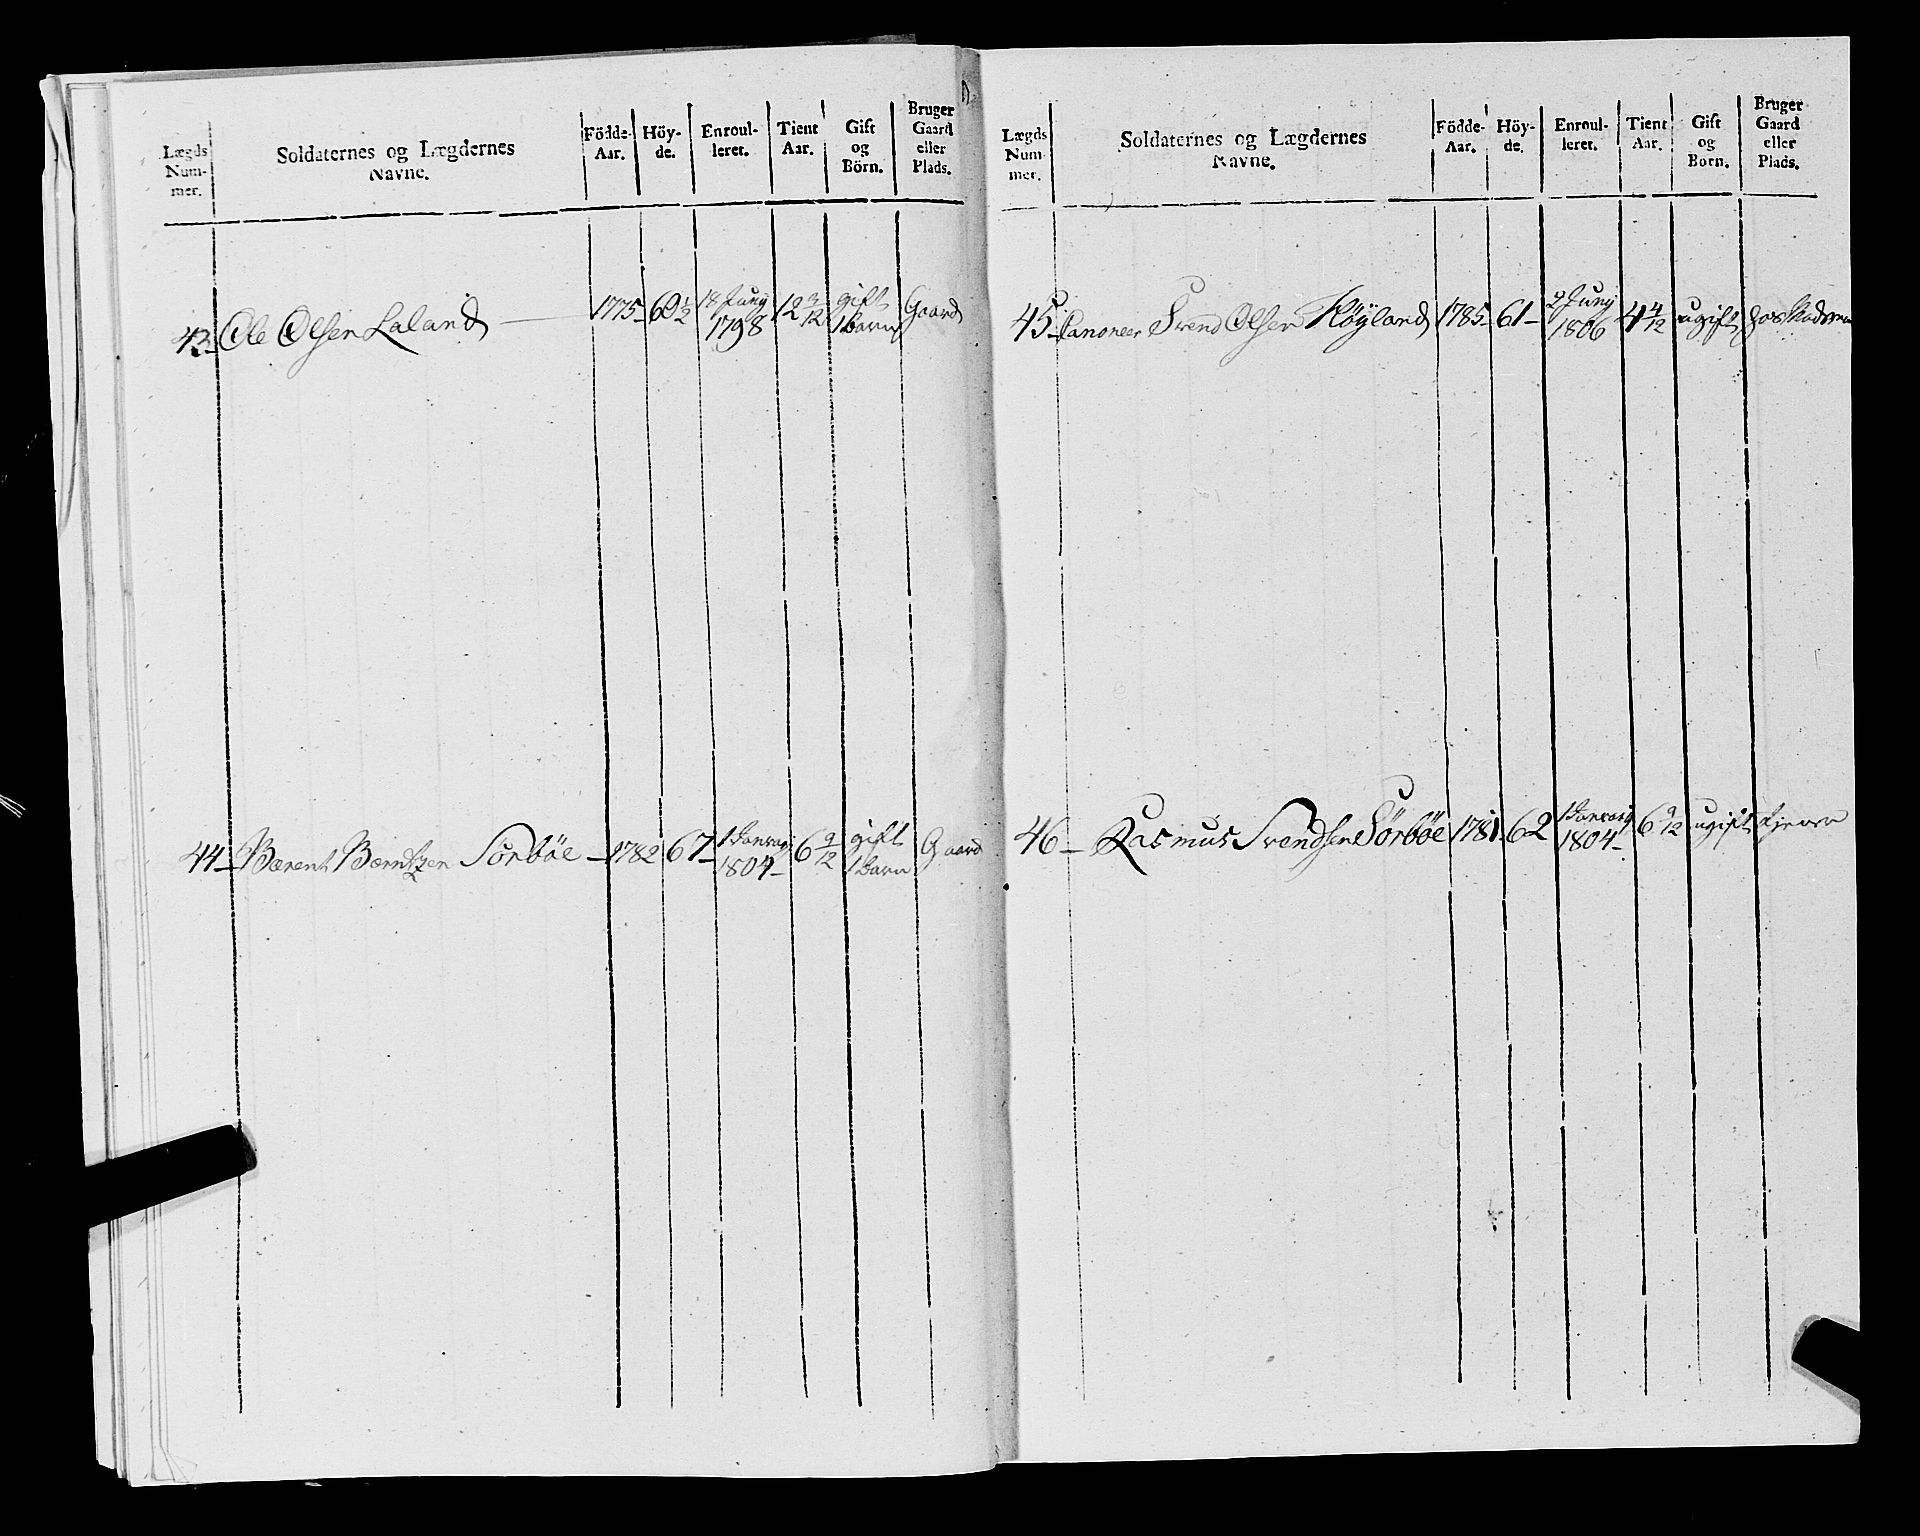 Lægds Num- mer. Soldaternes og Lægdernes Navne. Födde- Aar. Höy- de. Enroul- leret. Tient Aar. Gift og Börn. Bruger Gaard eller Plads.
43 Ole Olsen Laland 1775 60 1/2 18 Juny 1798 12 3/12 gift 1 Barn Gaard
44 Bærent Bærntzen Sörböe 1782 67 1 Januarij 1804 6 9/12 gift 1 Barn Gaard
Lægds Num- mer. Soldaternes og Lægdernes Navne. Födde- Aar. Höy- de. Enroul- leret. Tient Aar. Gift og Born. Bruger Gaard eller Plads.
45 Canoneer Svend Olsen Höyland 1785 61 2 Juny 1806 4 4/12 ugift hos
46 Rasmus Svendsen Sörböe 1781 62 1 Januarij 1804 6 9/12 ugift tjener